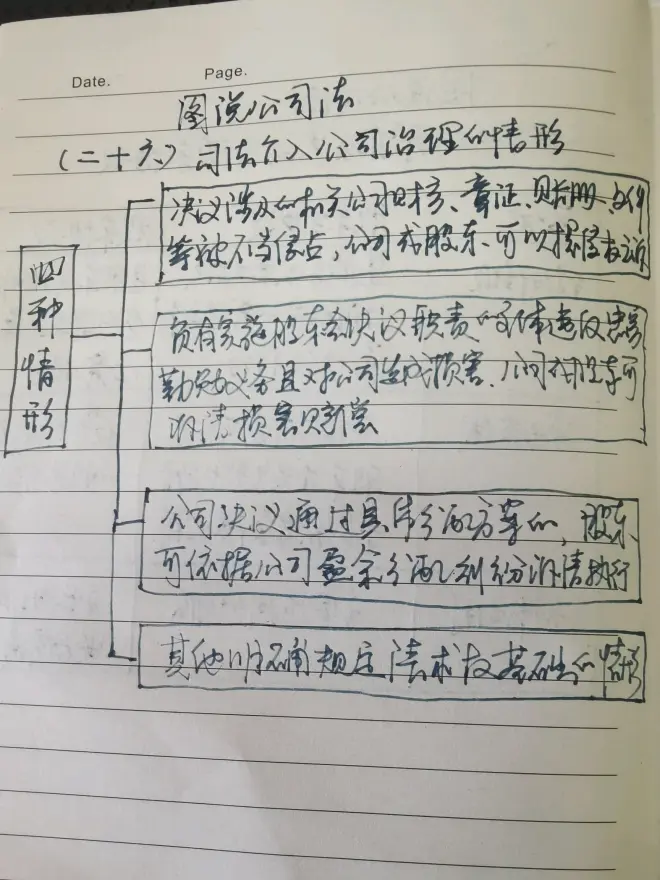 Date. Page.
图说公司法
(二十六)司法介入公司治理的情形
四种情形
决议涉及的相关公司 章证、账册、文件
等被不当侵占,公司或股东可以提侵权之诉
负有实施股东会决议职责的主体违反忠实
勤勉义务且对公司造成损害,公司或股东可
诉请损害赔偿
公司决议通过具体分配方案的,股东
可依据公司盈余分配纠纷诉请执行
其他明确规定请求权基础的情形